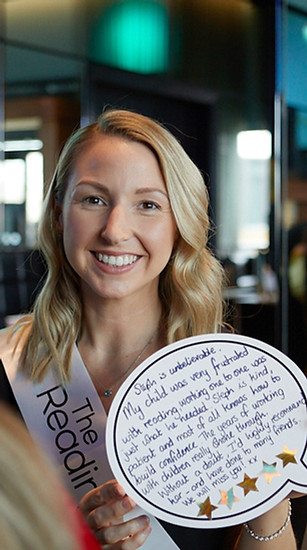 The
Readin
Steph is unbelievable.
My child was very frustrated
with reading, working one to one was
just what he needed. Steph is kind,
patient and most of all knows how to
build confidence. The years of working
with children really shone through.
Without a doubt I'd highly recommend
her - and have done to many friends.
We will miss you! xx